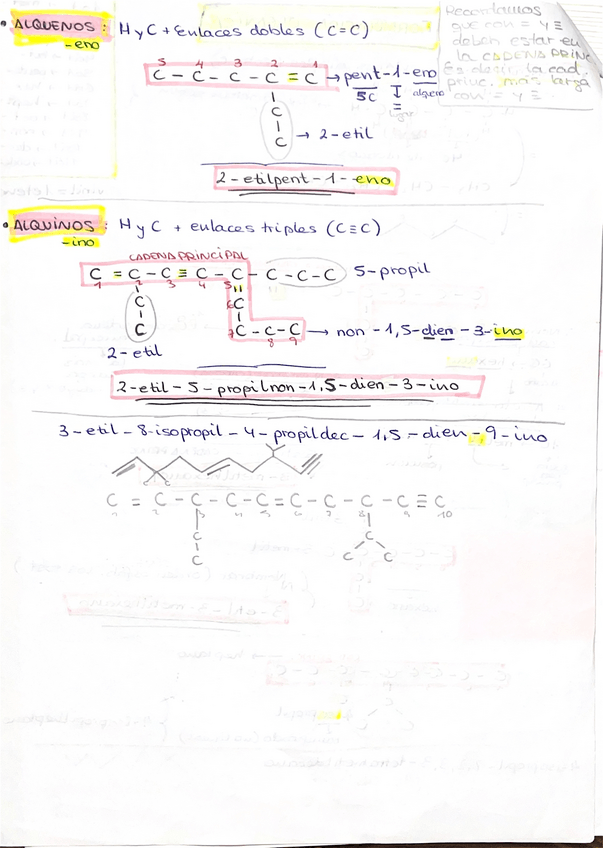 • ALQUENOS: H y C + Enlaces dobles (C=C)
-eno
Recordamos
que con = y ≡
deben estar en
la CADENA PRINC
Es decir, la cad.
princ. más larga
con = y ≡
5 4 3 2 1
C - C - C - C = C → pent-1-eno
5C alqueno
lugar
C
C → 2-etil
2-etilpent-1-eno
• ALQUINOS: H y C + enlaces triples (C≡C)
-ino
CADENA PRINCIPAL
C = C - C ≡ C - C - C - C - C 5-propil
1 2 3 4 5
C 6 C
C 7 C - C - C → non-1,5-dien-3-ino
8 9
2-etil
2-etil-5-propilnon-1,5-dien-3-ino
3-etil-8-isopropil-4-propildec-1,5-dien-9-ino
C C
C = C - C - C - C = C - C - C - C ≡ C
1 2 3 4 5 6 7 8 9 10
C C
C C C